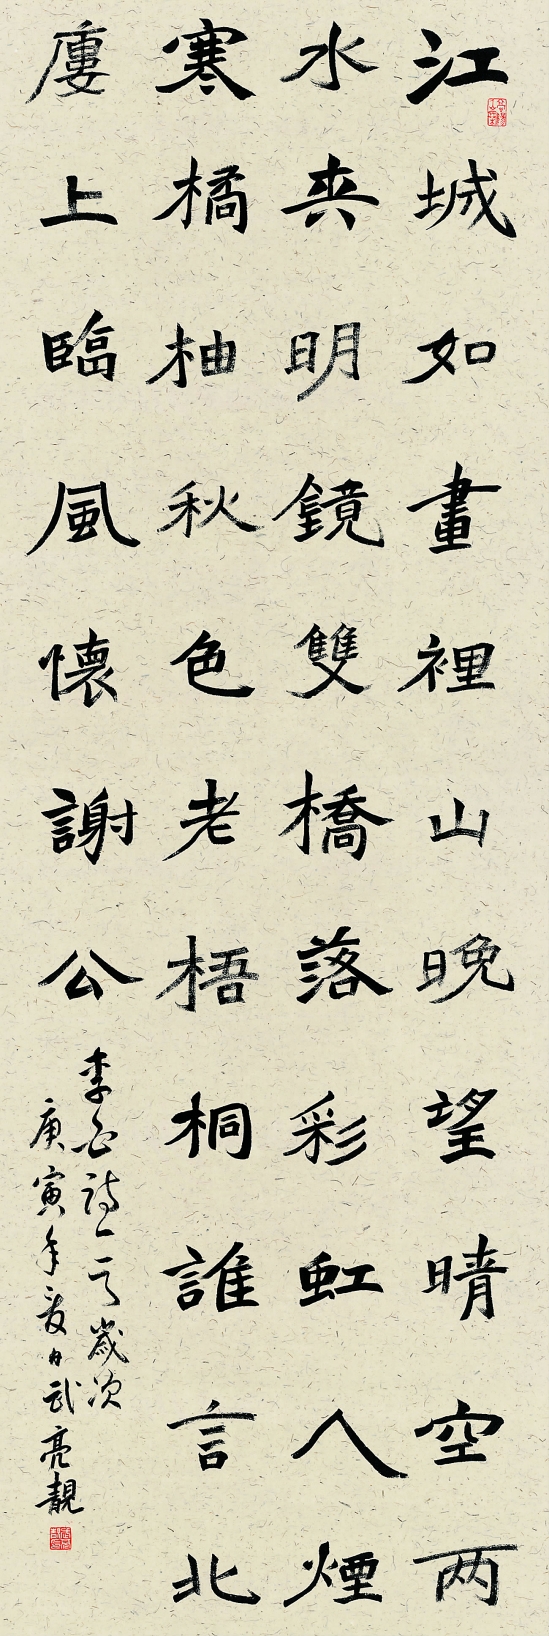 江城如畫裡山晚望晴空两
水夾明鏡雙橋落彩虹人煙
寒橘柚秋色老梧桐誰言北
廔上臨風懷謝公
李白詩一首歲次
庚寅年夏月武亮靚